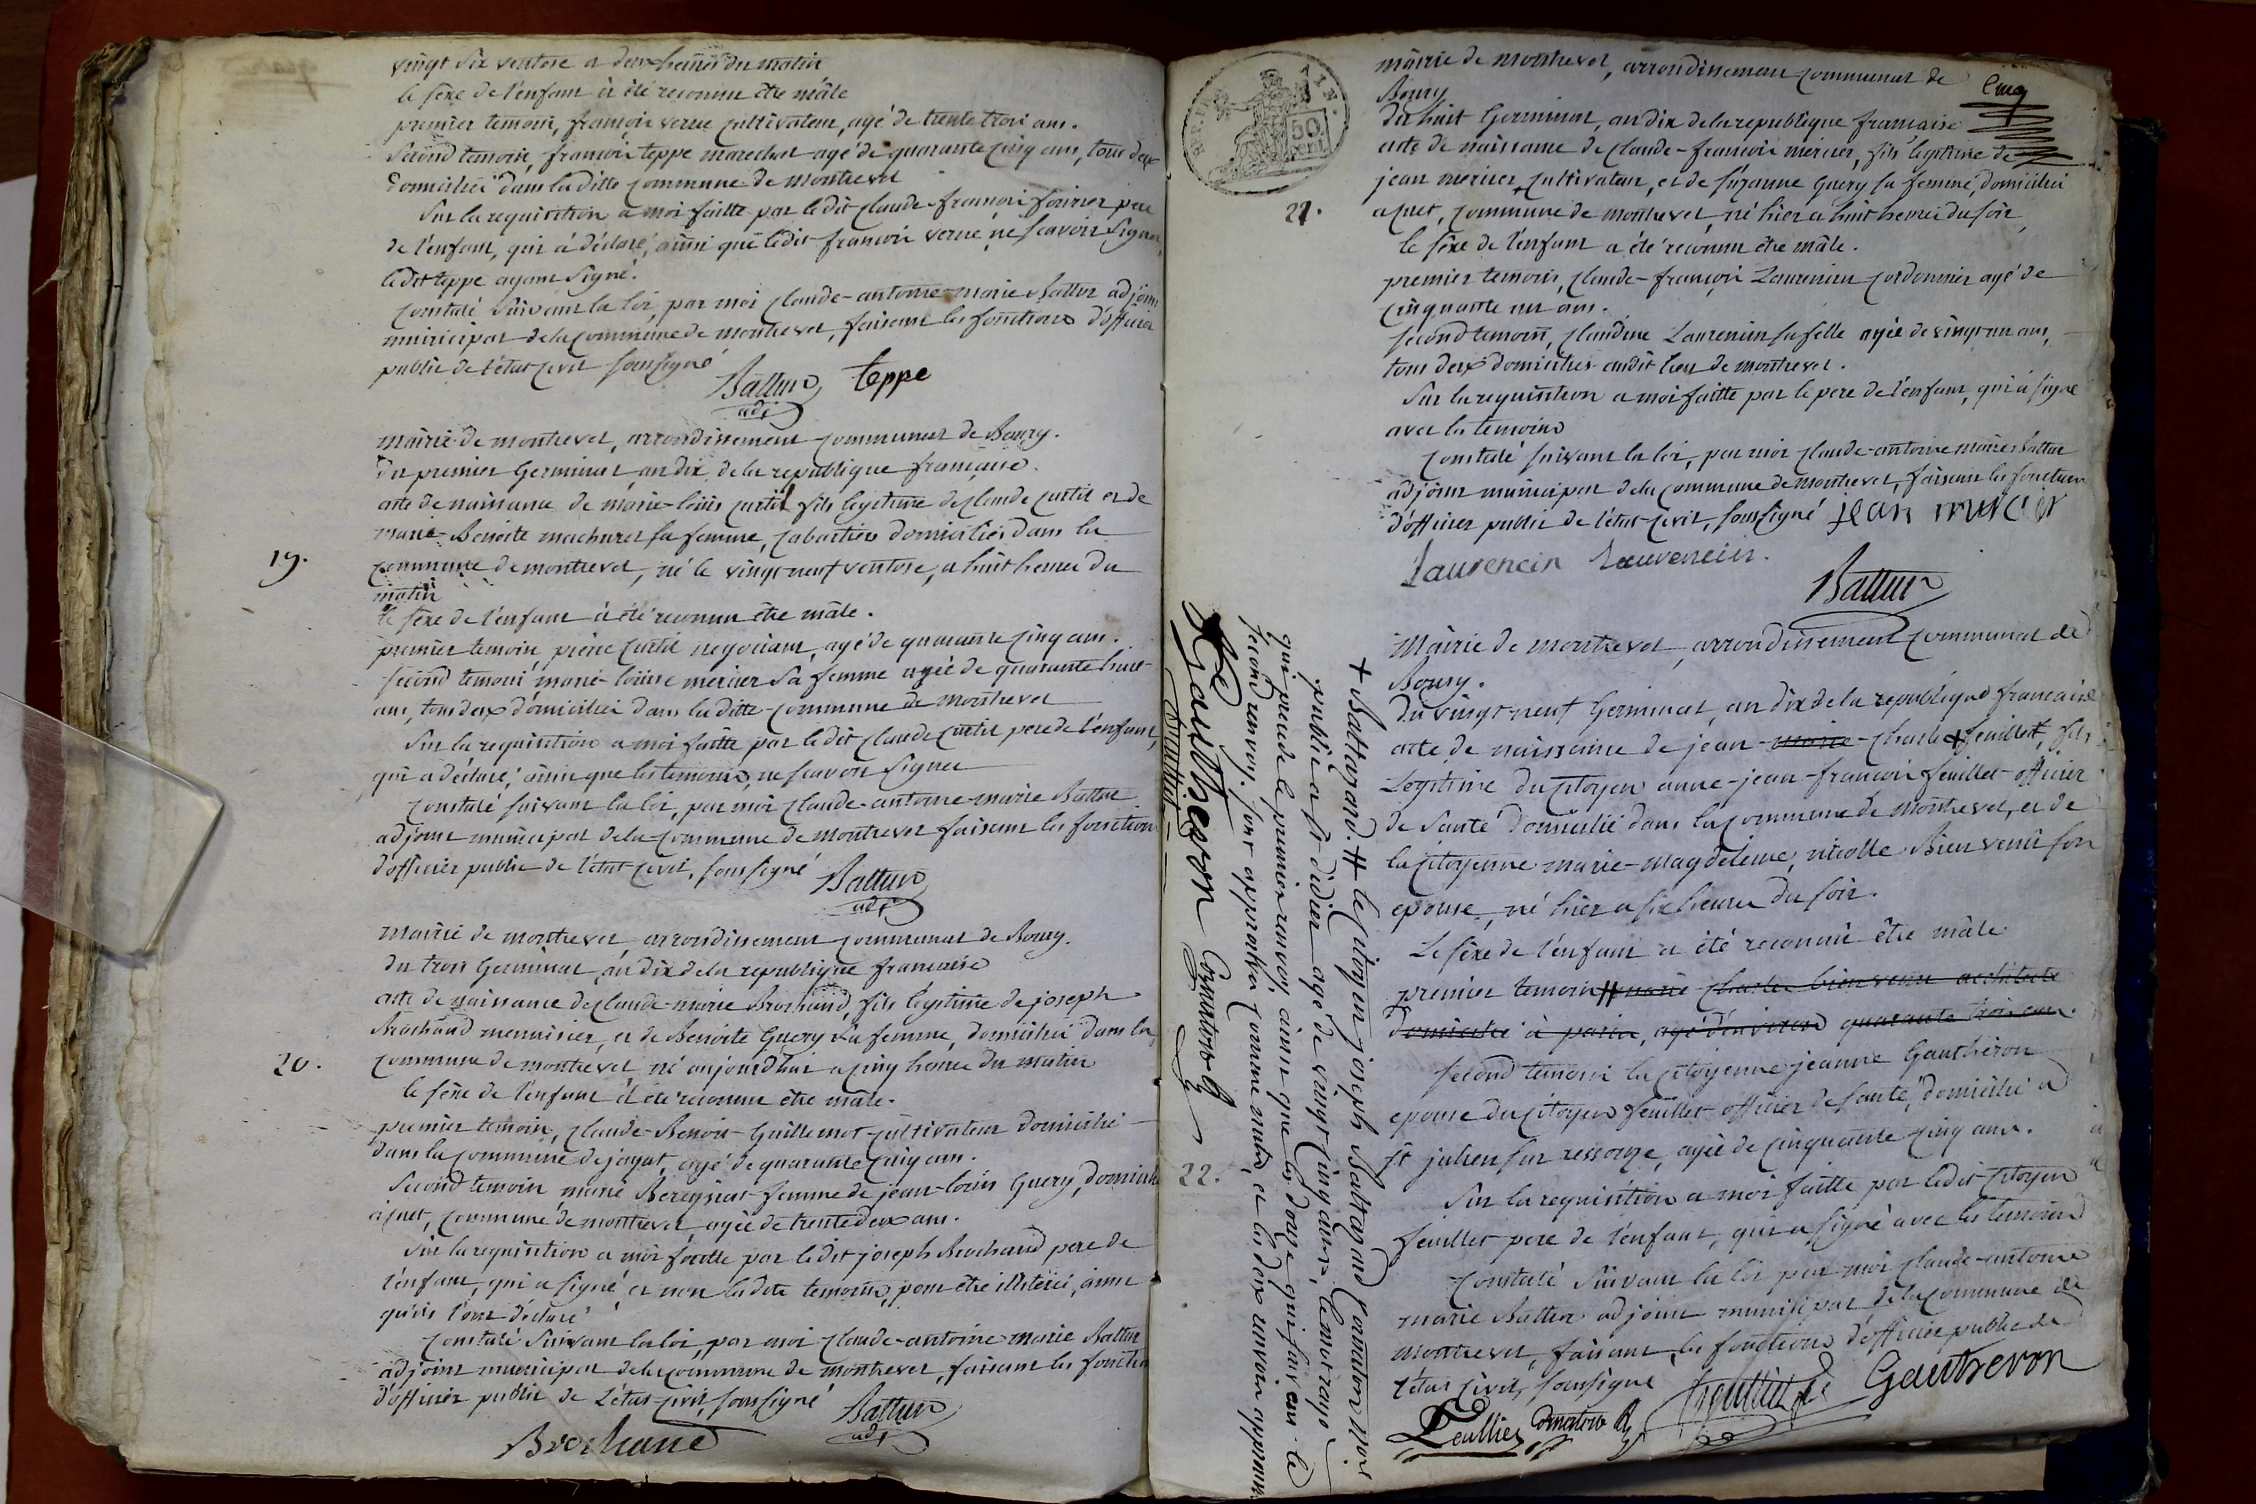 vingt six ventose a deux heures du matin
le sexe de l'enfant à été reconnu être mâle
premier temoin, françois verne cultivateur, agé de trente trois ans.
second temoin, françois teppe marechal agé de quarante cinq ans, tous deux
domiciliés dans la ditte commune de montrevel
Sur la requisition a moi faitte par ledit claude-françois fournier pere
de l'enfant, qui à déclaré, ainsi que ledit françois verne, ne scavoir signer
ledit teppe ayant signé.
constaté suivant la loi, par moi claude-antoine-marie Battur adjoint
municipal de la commune de montrevel, faisant les fonctions d'officier
public de l'état civil soussigné
Battur teppe
adj
mairie de montrevel, arrondissement communal de Bourg.
du premier Germinal, an dix de la republique française.
acte de naissance de marie-louis curtil fils legitime de claude curtil et de
marie-Benoite machurel sa femme, cabartiers domiciliés dans la
19.
commune de montrevel, né le vingt neuf ventose, a huit heures du
matin
le sexe de l'enfant à été reconnu être mâle.
premier temoin, pierre curtil negociant, agé de quarante cinq ans.
second temoin marie-louise mercier sa femme agée de quarante huit
ans, tous deux domiciliés dans la ditte commune de montrevel
Sur la requisition a moi faitte par ledit claude curtil pere de l'enfant,
qui a déclaré, ainsi que les temoins, ne scavoir signer
constaté suivant la loi, par moi claude-antoine-marie Battur
adjoint municipal de la commune de montrevel faisant les fonctions
d'officier public de l'état civil, soussigné Battur
adj
mairie de montrevel, arrondissement communal de Bourg.
du trois Germinal, an dix de la republique francaise
acte de naissance de claude-marie Brochand, fils légitime de joseph
Brochand menuisier, et de Benoite Guery sa femme, domiciliés dans la
20.
commune de montrevel, né aujourd'hui a cinq heures du matin
le sexe de l'enfant à été reconnu être mâle.
premier temoin, claude-Benoit Guillemot cultivateur domicilié
dans la commune de jayat, agé de quarante cinq ans.
Second temoin, marie Bereyziat femme de jean-louis Guery, domicilié
a cuet, commune de montrevel, agée de trente deux ans.
Sur la requisition a moi faitte par ledit joseph Brochand pere de
l'enfant, qui a signé et non les dits temoins, pour être illitérés, ainsi
qu'ils l'ont déclaré
constaté suivant la loi, par moi claude-antoine marie Battur
adjoint municipal de la commune de montrevel, faisant les fonctions
d'officier public de l'état civil, soussigné Battur
Brochand adj
mairie de montrevel, arrondissement communal de
Cinq
Bourg
du huit Germinal, an dix de la republique française
acte de naissance de claude-françois mercier, fils legitime de
jean mercier cultivateur, et de suzanne Guery sa femme, domiciliés
21.
a cuet, commune de montrevel, né hier a huit heures du soir,
le sexe de l'enfant a été reconnu être mâle.
premier temoin, claude-françois Laurencin cordonnier agé de
cinquante un ans.
second temoin, claudine Laurencin sa fille agée de vingt un ans,
tous deux domiciliés audit lieu de montrevel.
Sur la requisition a moi faitte par le pere de l'enfant, qui a signé
avec les temoins
constaté suivant la loi, par moi claude-antoine marie Battur
adjoint municipal de la commune de montrevel, faisant les fonctions
d'officier public de l'état civil, soussigné jean mercier
Laurencin Laurencin.
Battur
Mairie de montrevel, arrondissement communal de
Bourg.
du vingt-neuf Germinal, an dix de la republique francaise
acte de naissance de jean-marie-charle + feuillet, fils
Legitime du citoyen anne-jean-francois feuillet officier
de santé domicilié dans la commune de montrevel, et de
la citoyenne marie-magdeleine, nicolle Bienvenu son
epouse, né hier a six heures du soir.
Le sexe de l'enfant a été reconnu être mâle
premier temoin # marie charles bienvenu architecte
domicilié à paris, agé d'environ quarante trois ans.
second temoin la citoyenne jeanne Gautheron
epouse du citoyen feuillet officier de santé, domicilié a
st julien sur ressouze, agée de cinquante cinq ans.
22.
Sur la requisition a moi faitte par ledit citoyen
feuillet pere de l'enfant, qui a signé avec les temoins
constaté suivant la loi par moi claude-antoine
marie Battur adjoint municipal de la commune de
montrevel, faisant les fonctions d'officier public de
l'état civil, soussigné
Gautheron
+ Baltazard. # le citoyen joseph Baltazard Cornaton
public a st didier agé de vingt cinq ans, le mot rayé
qui precede le premier renvoi ainsi que les douze qui suivent le
second renvoi, sont approuvés comme nuls, et les deux renvois approuvés
Gautheron Cornaton